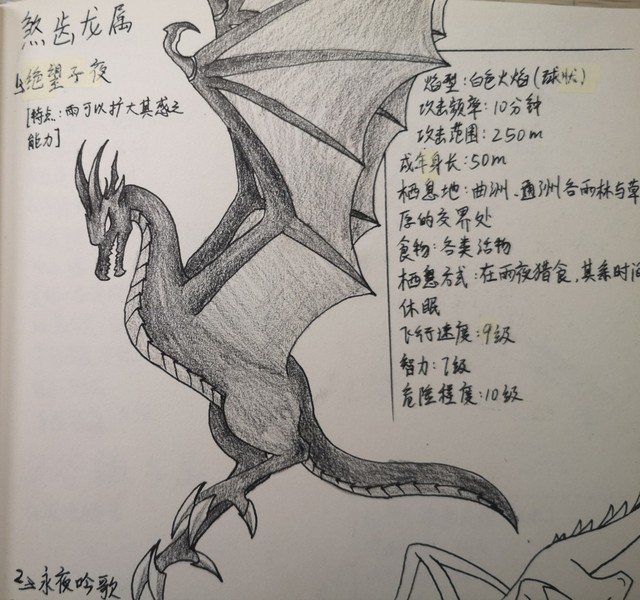 煞齿龙属
1→绝望子夜
[特点:雨可以扩大其感之
能力]
焰型:白色火焰(球状)
攻击频率:10分钟
攻击范围:250m
成年身长:50m
栖息地:曲洲、通洲各雨林与草
原的交界处
食物:各类活物
栖息方式:在雨夜猎食,其余时间
休眠
飞行速度:9级
智力:7级
危险程度:10级
2→永夜吟歌